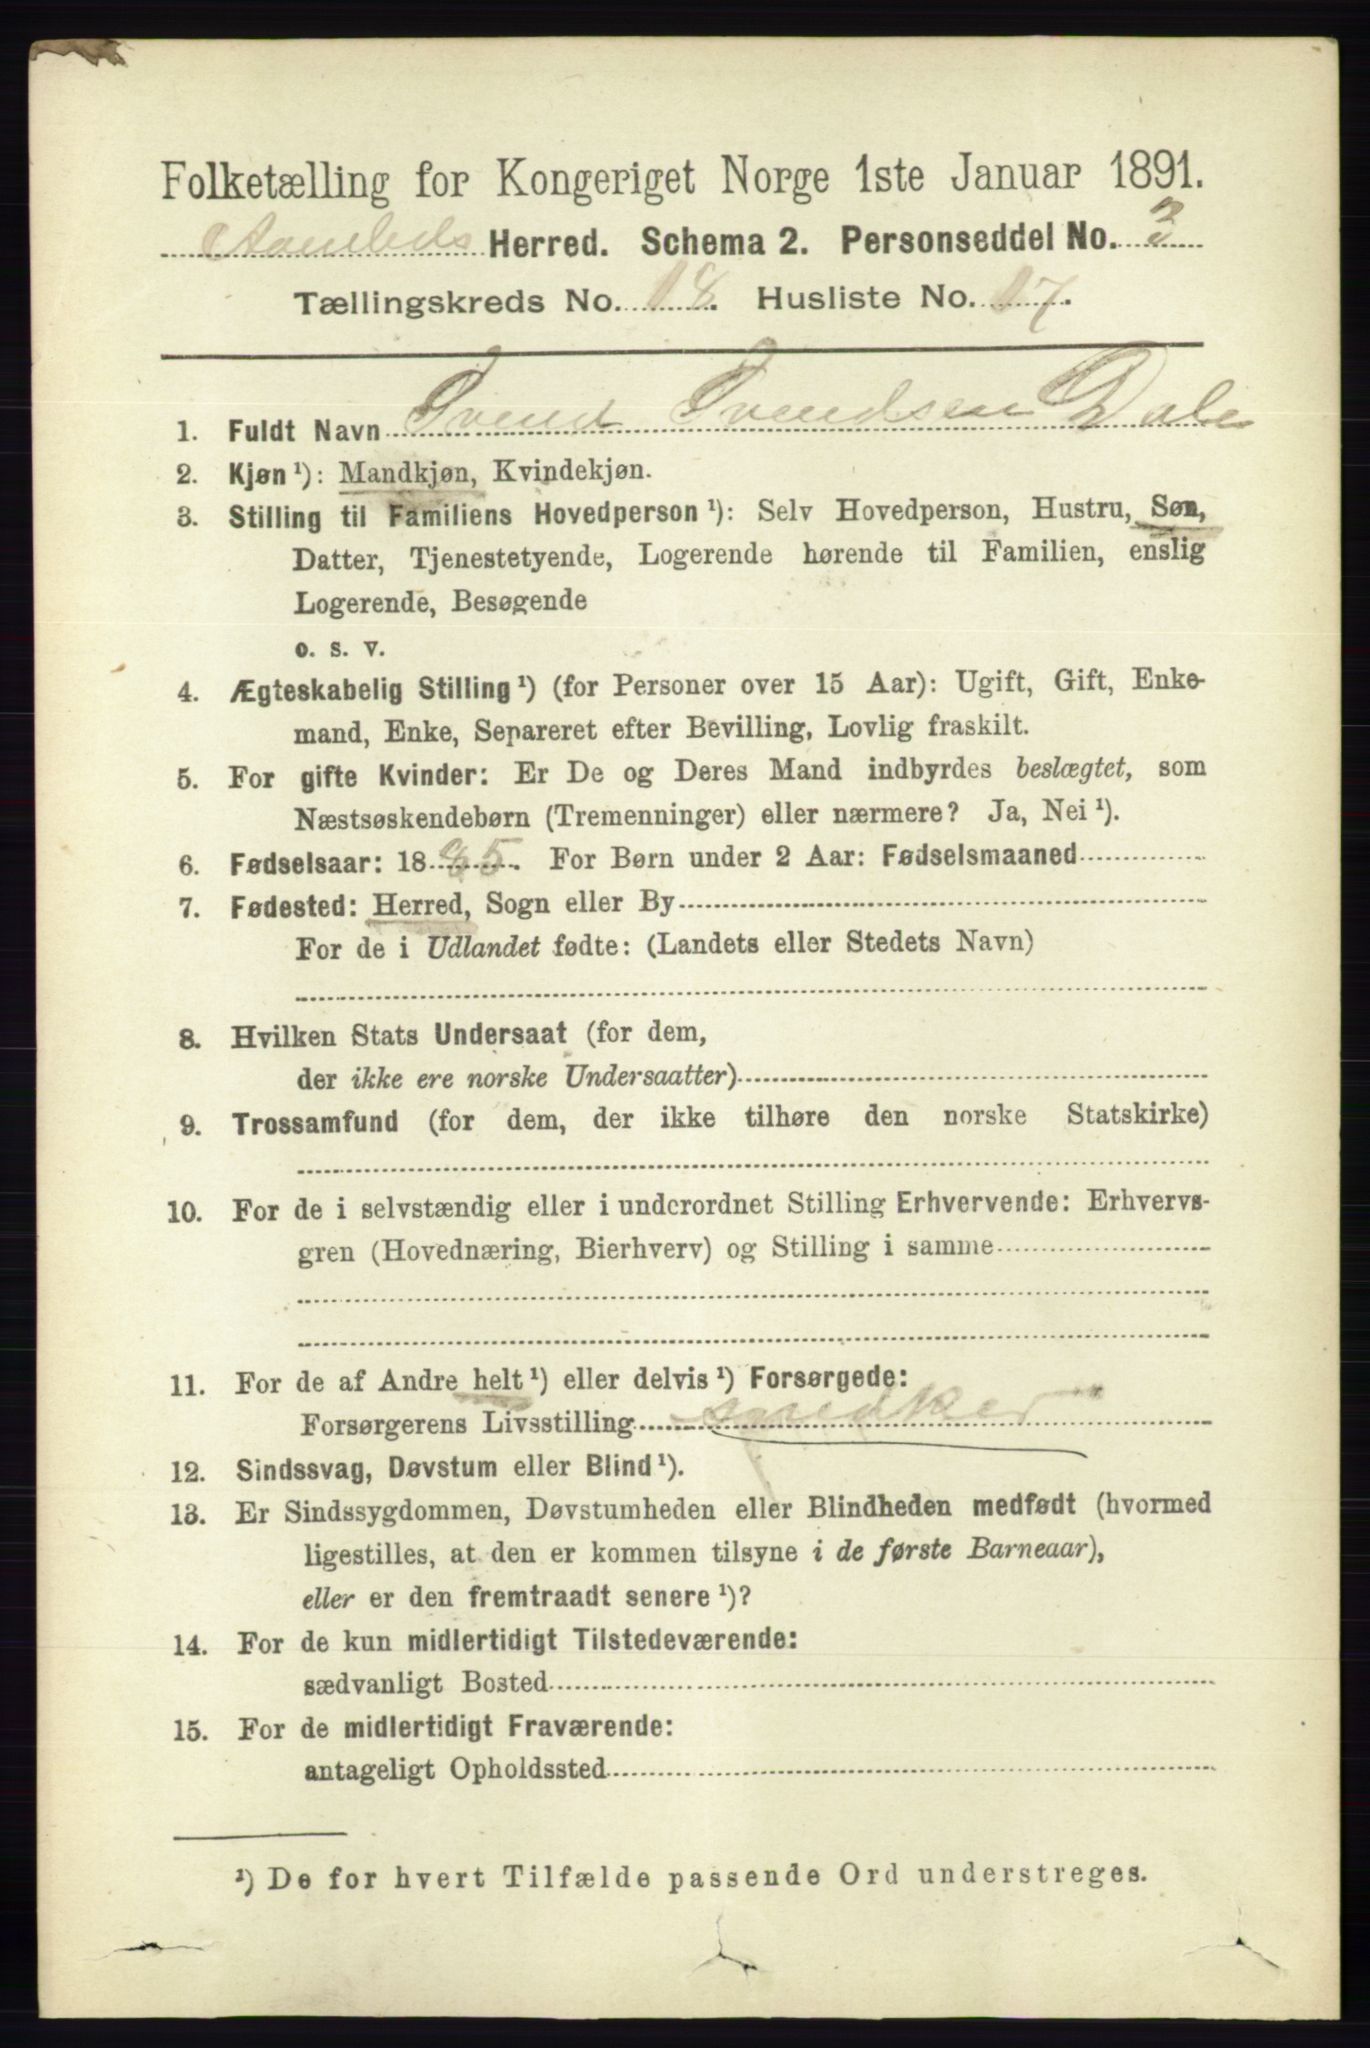 Folketælling for Kongeriget Norge 1ste Januar 1891.
Herred. Schema 2. Personseddel No. 3
Tællingskreds No. 18. Husliste No. 17.
1. Fuldt Navn Svend Svendsen Dale
2. Kjøn ¹): Mandkjøn, Kvindekjøn.
3. Stilling til Familiens Hovedperson ¹): Selv Hovedperson, Hustru, Søn,
Datter, Tjenestetyende, Logerende hørende til Familien, enslig
Logerende, Besøgende
o. s. v.
4. Ægteskabelig Stilling ¹) (for Personer over 15 Aar): Ugift, Gift, Enke-
mand, Enke, Separeret efter Bevilling, Lovlig fraskilt.
5. For gifte Kvinder: Er De og Deres Mand indbyrdes beslægtet, som
Næstsøskendebørn (Tremenninger) eller nærmere? Ja, Nei ¹).
6. Fødselsaar: 1885. For Børn under 2 Aar: Fødselsmaaned
7. Fødested: Herred, Sogn eller By
For de i Udlandet fødte: (Landets eller Stedets Navn)
8. Hvilken Stats Undersaat (for dem,
der ikke ere norske Undersaatter)
9. Trossamfund (for dem, der ikke tilhøre den norske Statskirke)
10. For de i selvstændig eller i underordnet Stilling Erhvervende: Erhvervs-
gren (Hovednæring, Bierhverv) og Stilling i samme
11. For de af Andre helt ¹) eller delvis ¹) Forsørgede:
Forsørgerens Livsstilling snedker
12. Sindssvag, Døvstum eller Blind ¹).
13. Er Sindssygdommen, Døvstumheden eller Blindheden medfødt (hvormed
ligestilles, at den er kommen tilsyne i de første Barneaar),
eller er den fremtraadt senere ¹)?
14. For de kun midlertidigt Tilstedeværende:
sædvanligt Bosted
15. For de midlertidigt Fraværende:
antageligt Opholdssted
¹) De for hvert Tilfælde passende Ord understreges.